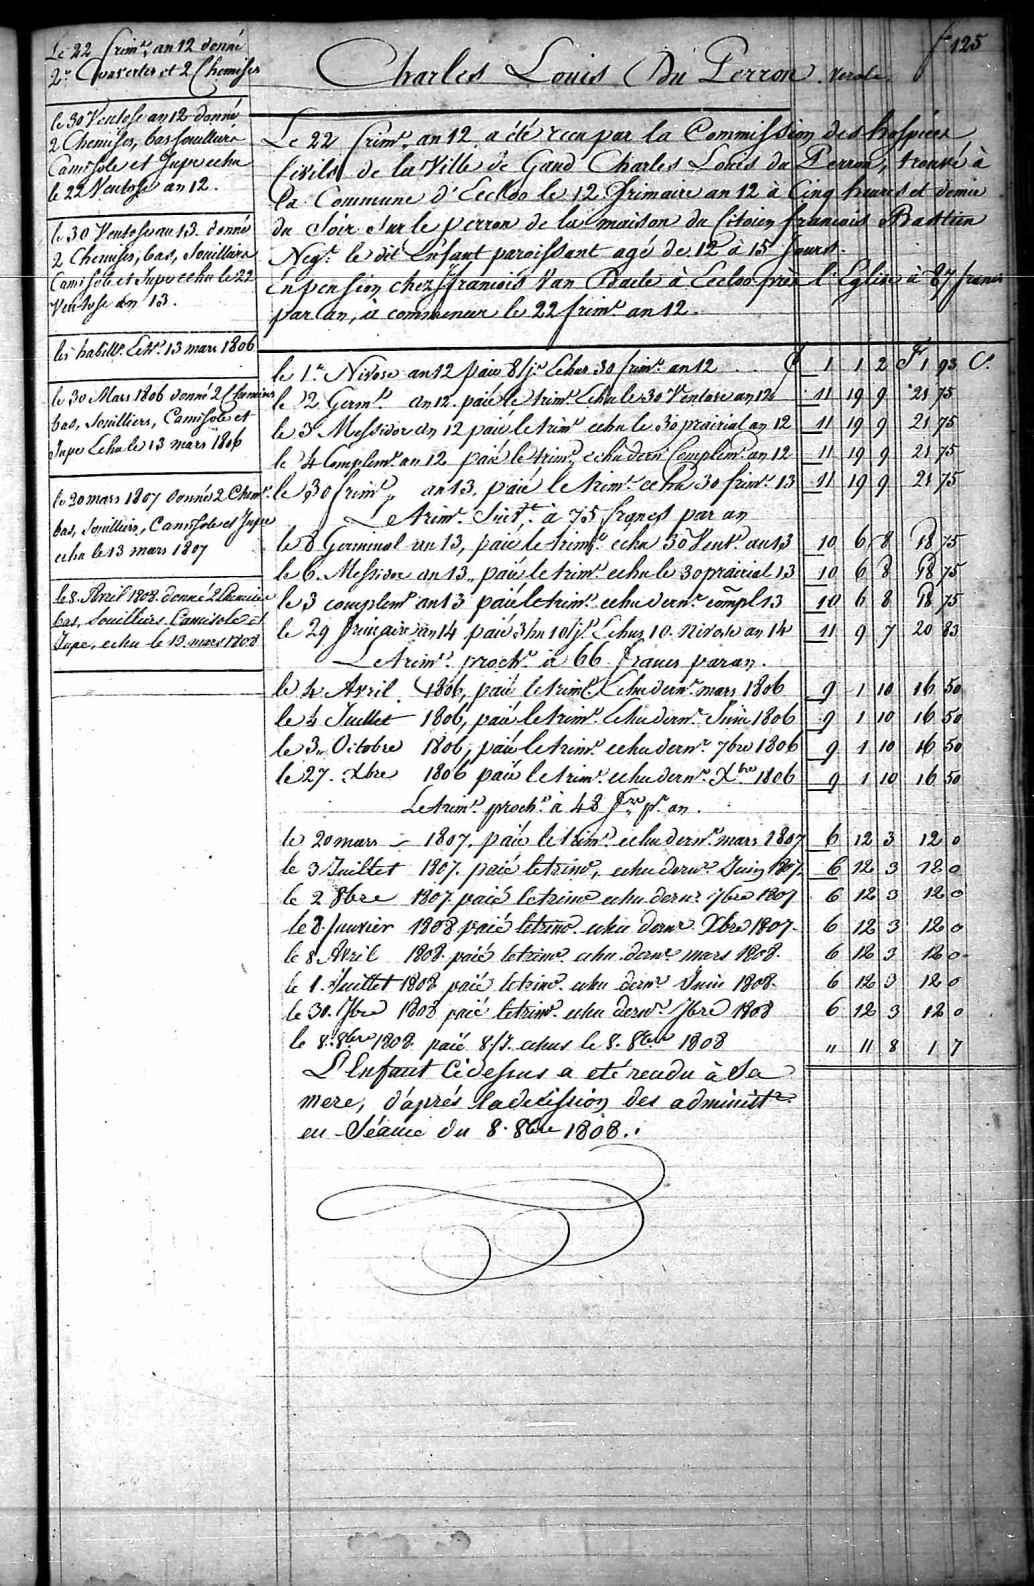 fo 125
Charles Louis Du Perron
Le 22 frimre an 12 donné
2 Couvertes et 2 Chemises
le 30 Ventose an 12 donné
2 Chemises, bas souilliers
Camisole et Jupe echu
le 22 Ventose an 12.
le 30 Ventose an 13. donné
2 Chemises, bas, Souilliers
Camisole et Jupe echu le 22
Ventose an 13.
les habillts Echus 13 mars 1806
le 30 Mars 1806 donné 2 Chemises
bas, Souilliers, Camisole et
Jupe Echu le 13 mars 1806
le 20 mars 1807 donné 2 Chems
bas, Souilliers, Camisole et Jupe
echu le 13 mars 1807
le 8. Avril 1808. donné 2 Chemises
bas, Souilliers Camisole et
Jupe, echu le 13 mars 1808
Le 22 frimre an 12 a été recu par la Commission des hospices
Civils de la Ville de Gand Charles Louis du Perron, trouvé à
la Commune d'Eecloo le 12 frimaire an 12 à Cinq heures et demie
du Soir Sur le perron de la maison du Citoien francois Bastien
Negt le dit Enfant paroissant agé de 12 à 15 Jours.
En pension chez francois Van Daele à Eecloo près l'Eglise à 87 francs
par an, à commencer le 22 frimre an 12.
le 1er Nivose an 12 paié 8 js Echus 30 frimre an 12 £ 1 1 2 F 1 93 C.
le 2 Germl an 12. paié le trimre Echu le 30 Ventose an 12 11 19 9 21 75
le 3 Messidor an 12 paié le trimre echu le 30 prairial an 12 11 19 9 21 75
le 4 Complemre an 12 paié le trimre echu dern Complemre an 12 11 19 9 21 75
le 30 frimre an 13. paié le trimre echu 30 frimre 13 11 19 9 21 75
Le trimre Suivt à 75 francs par an
le 8 Germinal an 13, paié le trimre echu 30 Vents an 13 10 6 8 18 75
le 6. Messidor an 13., paié le trimre echu le 30 prairial 13 10 6 8 18 75
le 3 complemre an 13 paié le trimre echu dernr compl 13 10 6 8 18 75
le 29 frimaire an 14 paié 3 m 10 js Echus 10. Nivose an 14 11 9 7 20 83
Le trimre prochn à 66 francs par an.
le 4 Avril 1806, paié le trimre Echu dernr mars 1806 9 1 10 16 50
le 4 Juillet 1806, paié le trimre Echu dernr Juin 1806 9 1 10 16 50
le 3 Octobre 1806, paié le trimre echu dernr 7bre 1806 9 1 10 16 50
le 27. Xbre 1806 paié le trimre echu dernr Xbre 1806 9 1 10 16 50
Le trimre prochn à 48 frs pr an.
le 20 mars 1807. paié le trimre echu dernr mars 1807 6 12 3 12 0
le 3 Juillet 1807. paié le trimre, echu dernr Juin 1807. 6 12 3 12 0
le 2 8bre 1807. paié le trimre echu dernr 7bre 1807 6 12 3 12 0
le 8 Janvier 1808 paié le trimre echu dernr Xbre 1807. 6 12 3 12 0
le 8 Avril 1808. paié le trimre echu dernr mars 1808. 6 12 3 12 0
le 1. Juillet 1808 paié le trimre echu dernr Juin 1808. 6 12 3 12 0
le 30. 7bre 1808 paié le trimre echu dernr 7bre 1808 6 12 3 12 0
le 8. 8bre 1808. paié 8 js. echus le 8. 8bre 1808 " 11 8 1 7
L'Enfant Cidessus a eté rendu à Sa
mere, d'aprés la decission des administrs
en Séance du 8. 8bre 1808.